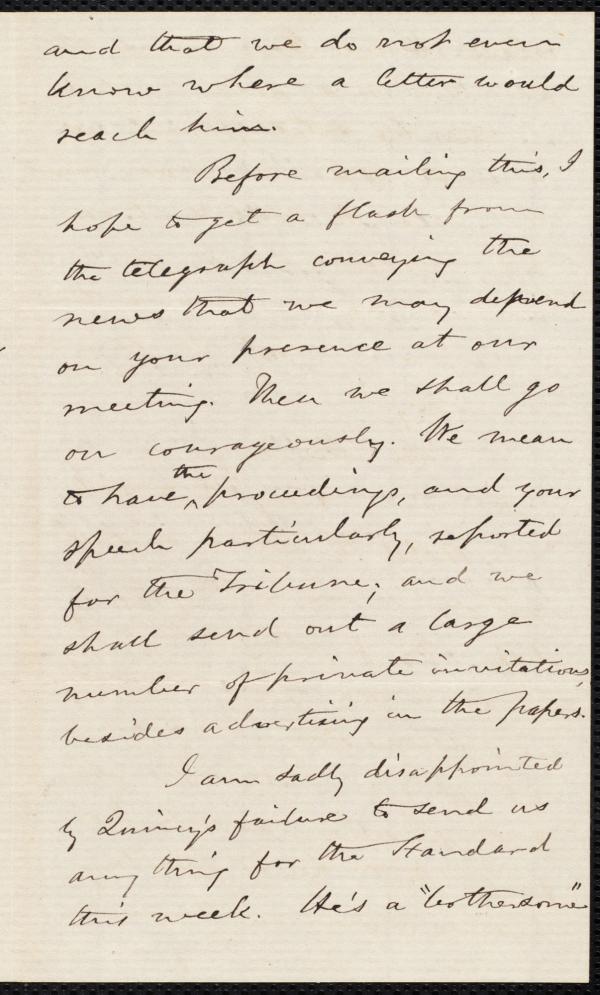 and that we do not even
know where a letter would
reach him.
Before mailing this, I
hope to get a flash from
the telegraph conveying the
news that we may depend
on your presence at our
meeting. Then we shall go
on courageously. We mean
to have the proceedings, and your
speech particularly, reported
for the Tribune; and we
shall send out a large
number of private invitations,
besides advertising in the papers.
I am sadly disappointed
by Quincy's failure to send us
any thing for the Standard
this week. He's a "bothersome"